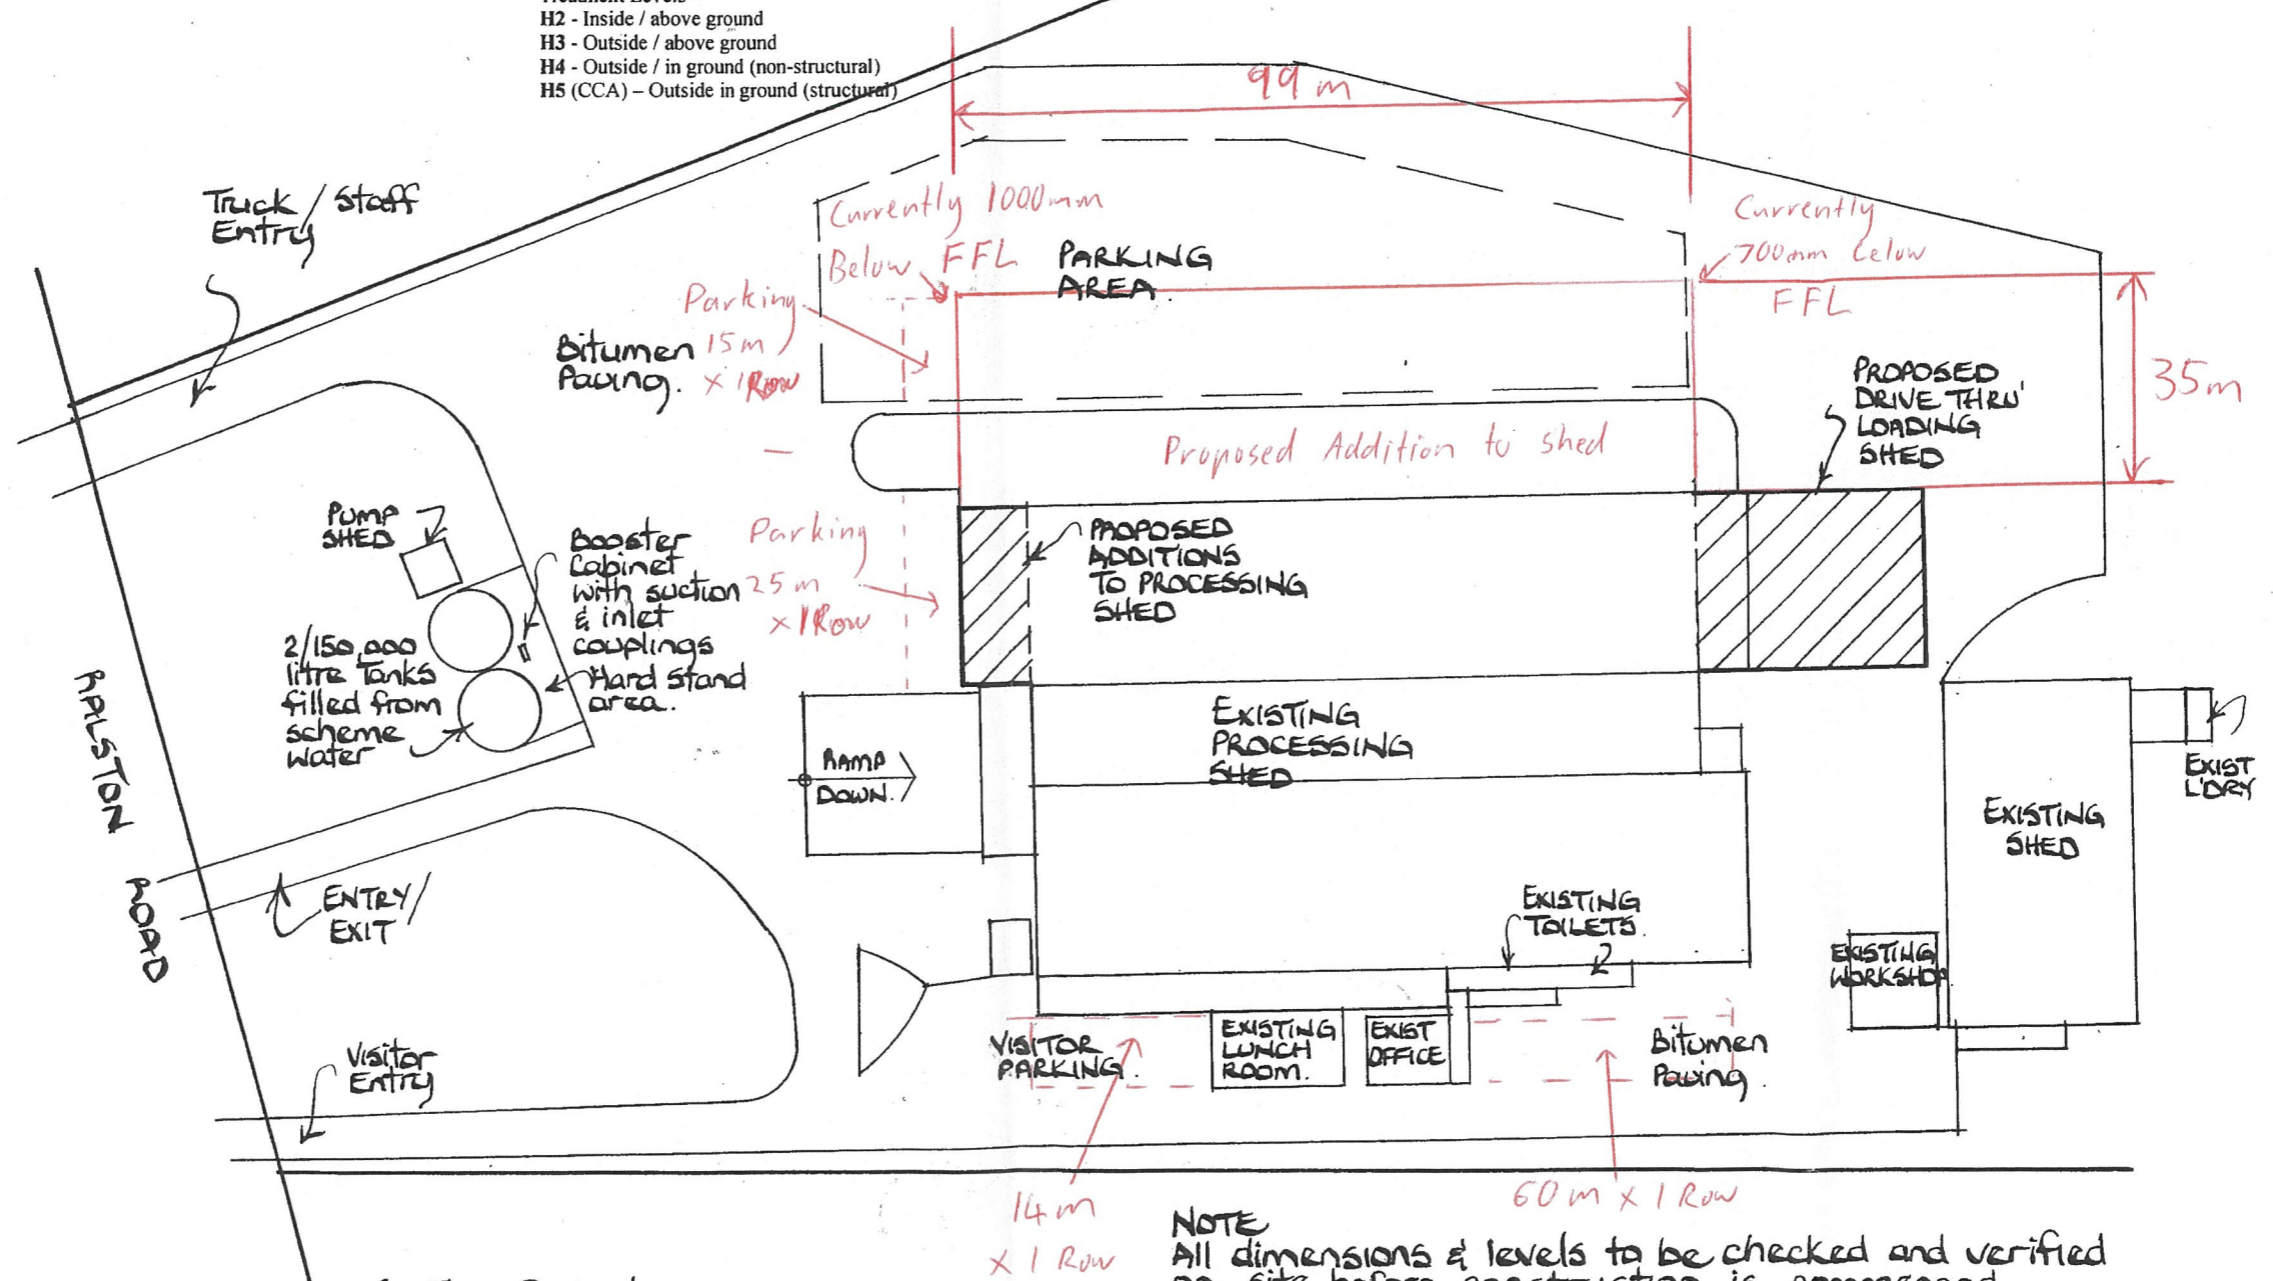 H2 - Inside / above ground
H3 - Outside / above ground
H4 - Outside / in ground (non-structural)
H5 (CCA) – Outside in ground (structural)
99 m
Truck / Staff
Entry
Currently 1000mm
Below FFL
PARKING
AREA.
Currently
700mm below
FFL
Parking
15m
x 1 Row
Bitumen
Paving.
35m
PROPOSED
DRIVE THRU'
LOADING
SHED
Proposed Addition to shed
PUMP
SHED
Booster
Cabinet
with suction
& inlet
couplings
Hard stand
area.
Parking
25m
x 1 Row
PROPOSED
ADDITIONS
TO PROCESSING
SHED
2/150,000
litre Tanks
filled from
scheme
water
RALSTON
ROAD
EXISTING
PROCESSING
SHED
RAMP
DOWN.
EXIST
L'DRY
EXISTING
SHED
ENTRY/
EXIT
EXISTING
TOILETS.
EXISTING
WORKSHOP
Visitor
Entry
VISITOR
PARKING.
EXISTING
LUNCH
ROOM.
EXIST
OFFICE
Bitumen
Paving.
14m
x 1 Row
60m x 1 Row
NOTE
All dimensions & levels to be checked and verified
on site before construction is commenced